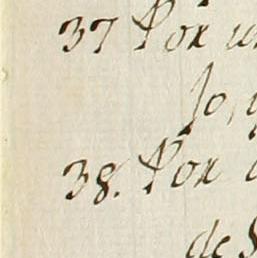 37 Por
jo,
38. Por
de